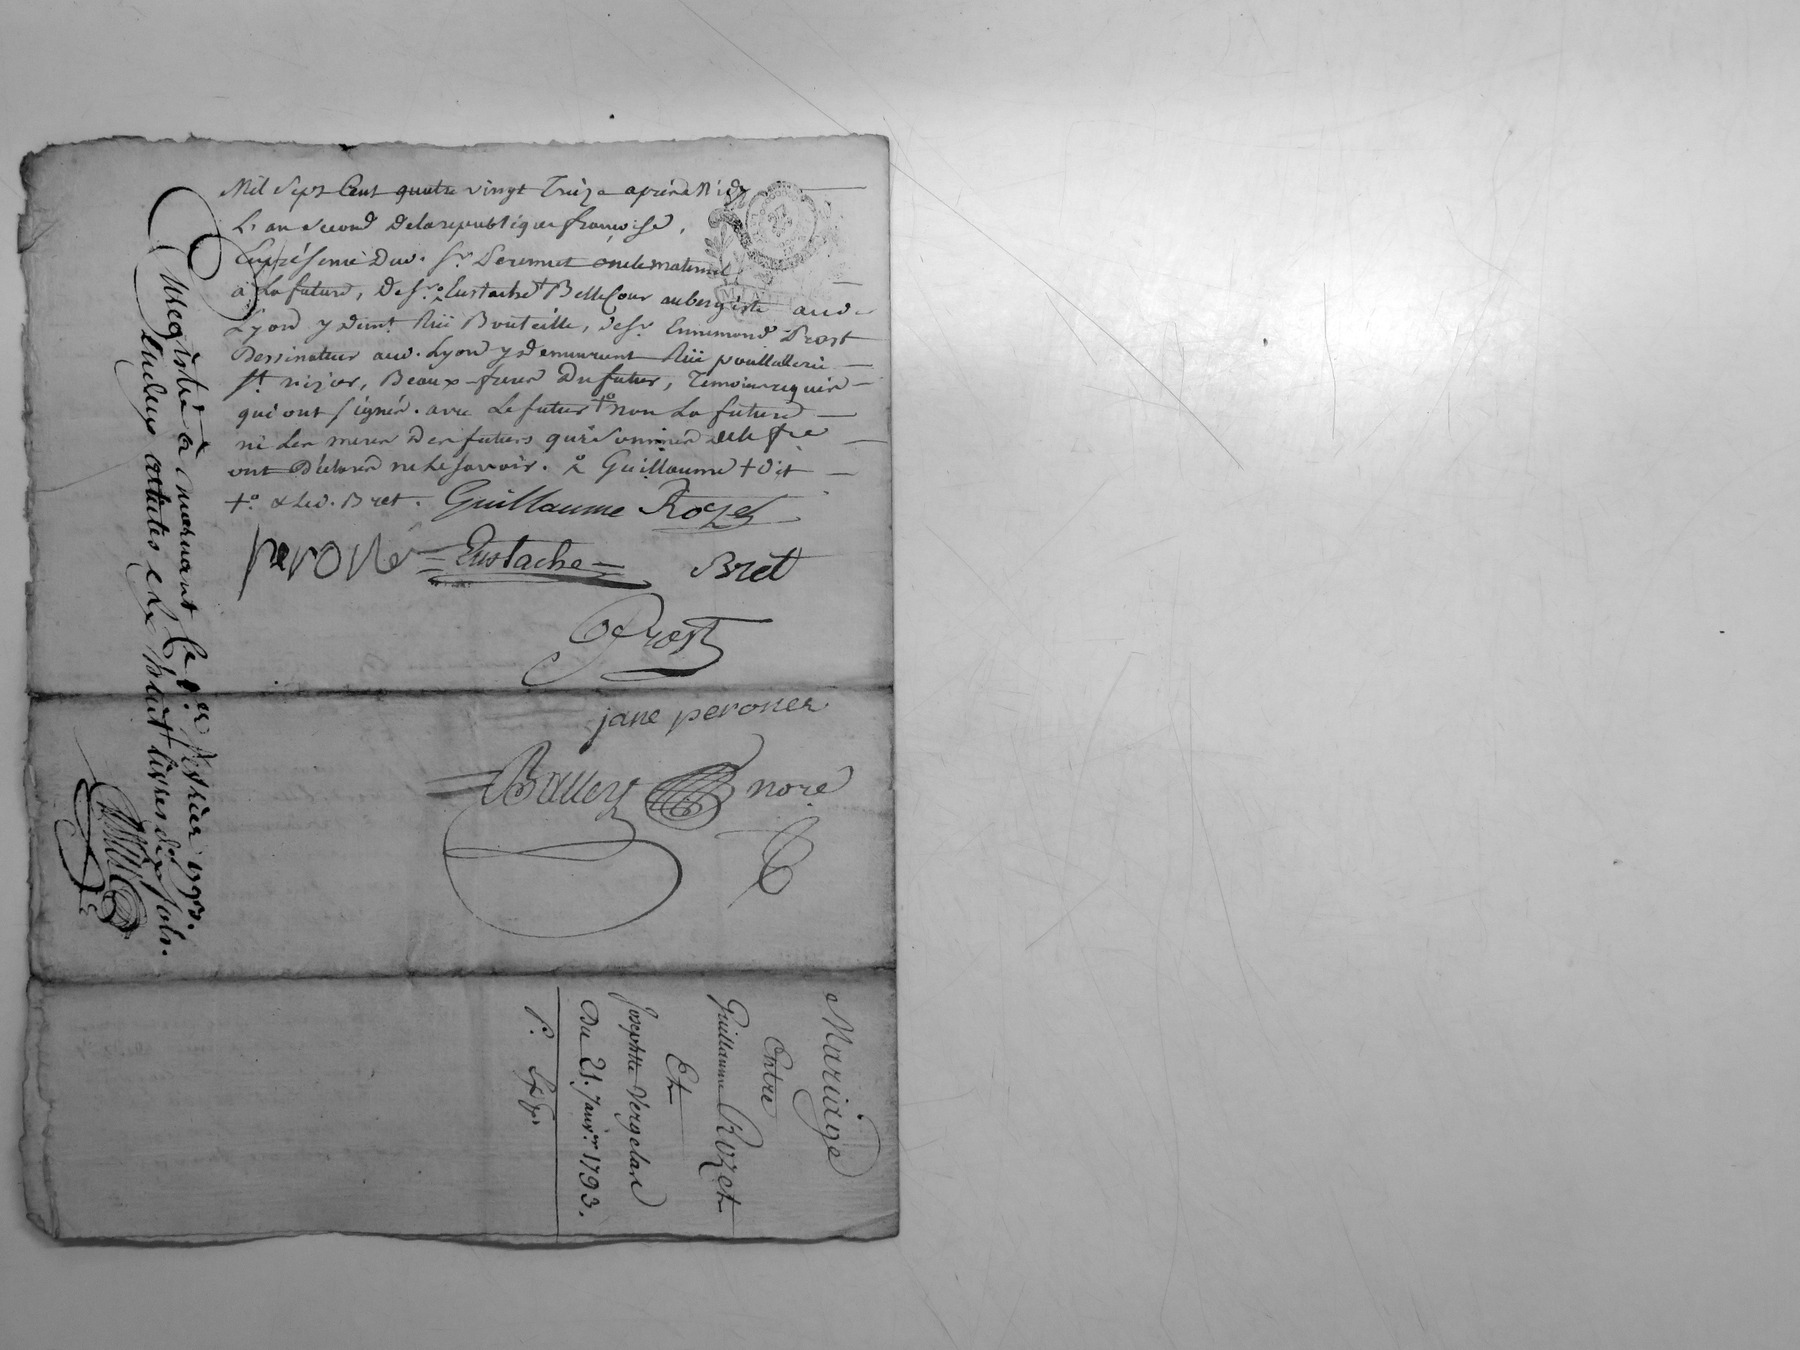 Mil Sept Cent quatre vingt Treize après Midy
L'an second de la republique françoise,
En présence dud. Sr. Peronnet oncle maternel
à la future, de Sr. + Eustache + Bellecour aubergiste aud.
Lyon y demt. Rüe Bouteille, de Sr. Ennemond Prost
Dessinateur aud. Lyon y demeurant Rüe poullallerie
St. nizier, Beaux-freres du futur, Temoins requis
qui ont signés. avec Le futur +° non La future
ni Les meres des futurs qui de ce
ont déclaré ne le savoir. Guillaume + dit
+° & led. Bret. Guillaume Rozet
Eustache Bret
Prost
jane peroner
nore
Enregistré à mornant Le 1er. fevrier 1793.
livres dix sols.
Mariage
Entre
Guillaume Rozet
Et
Josephte Vergelas
Du 21. Janvr. 1793.